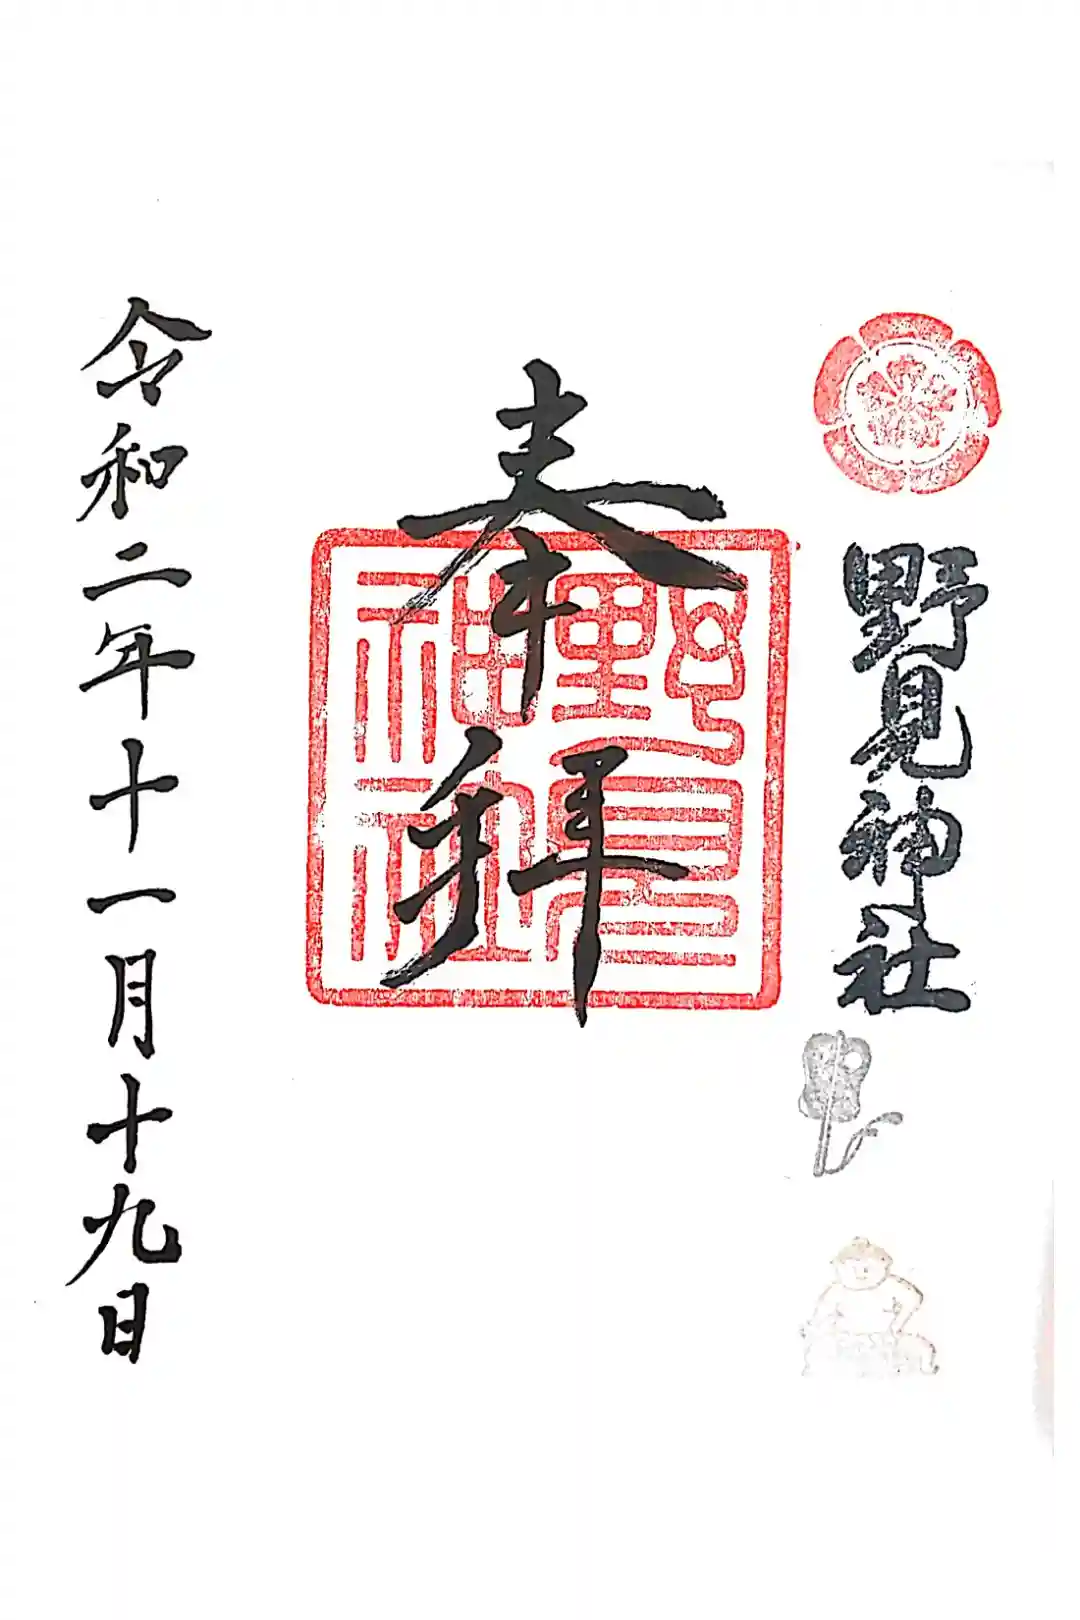 野見神社
奉拝
野見
神社
令和二年十一月十九日